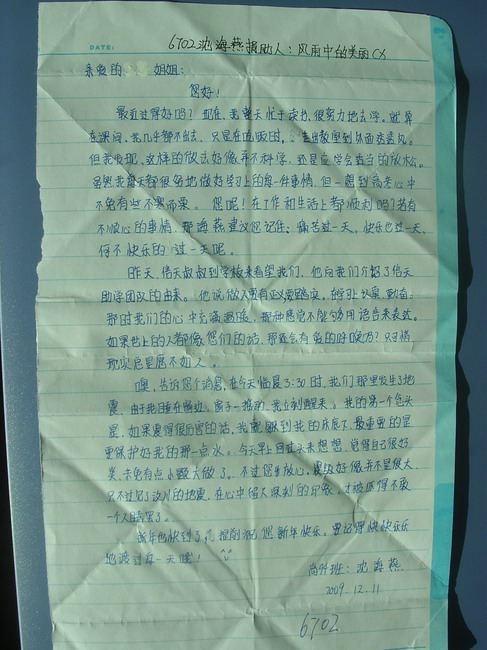 DATE:
6702沈海燕捐助人：风雨中的美丽CX
亲爱的 姐姐：
您好！
最近过得好吗？现在，我整天忙于读书，很努力地去学。就算
在课间，我几乎都不出去，只是在吃饭时，走出教室到外面透透风。
但我发现，这样的做法好像并不科学，还是应学会适当的放松。
虽然我每天都很努力地做好学习上的每一件事情，但一想到高考心中
不免有些不寒而栗。您呢！在工作和生活上都顺利吗？若有
不顺心的事情，那海燕建议您记住：痛苦过一天，快乐也过一天，
何不快乐的过一天呢。
昨天，倍天叔叔到学校来看望我们，他向我们介绍了倍天
助学团队的由来。他说做人要有正义要踏实，
那时我们的心中充满温暖，那种感觉不能够用语言来表达。
如果世上的人都像您们的话，那还会有 的呼唤吗？只可惜，
现实总是 不如人。
噢，告诉您个消息，在今天临晨3:30时，我们那里发生了地
震，由于我 睡在 ，窗子一摇动，我立刻醒来。我的第一个念头
是，如果震得很厉害的话，我就躲到我的床底下，最重要的是
要保护好我的那一点水。今天早上回过头来想想，觉得自己很好
笑，未免有点小题大做了。不过您请放心，震级好像并不是很大
只不过见了汶川的地震，在心中留下深刻的印象，才被吓得不敢
一个人睡罢了。
新年也快到了， 提前祝您新年快乐。要记得快快乐乐
地渡过每一天喔！
高 班：沈海燕
2009.12.11
6702